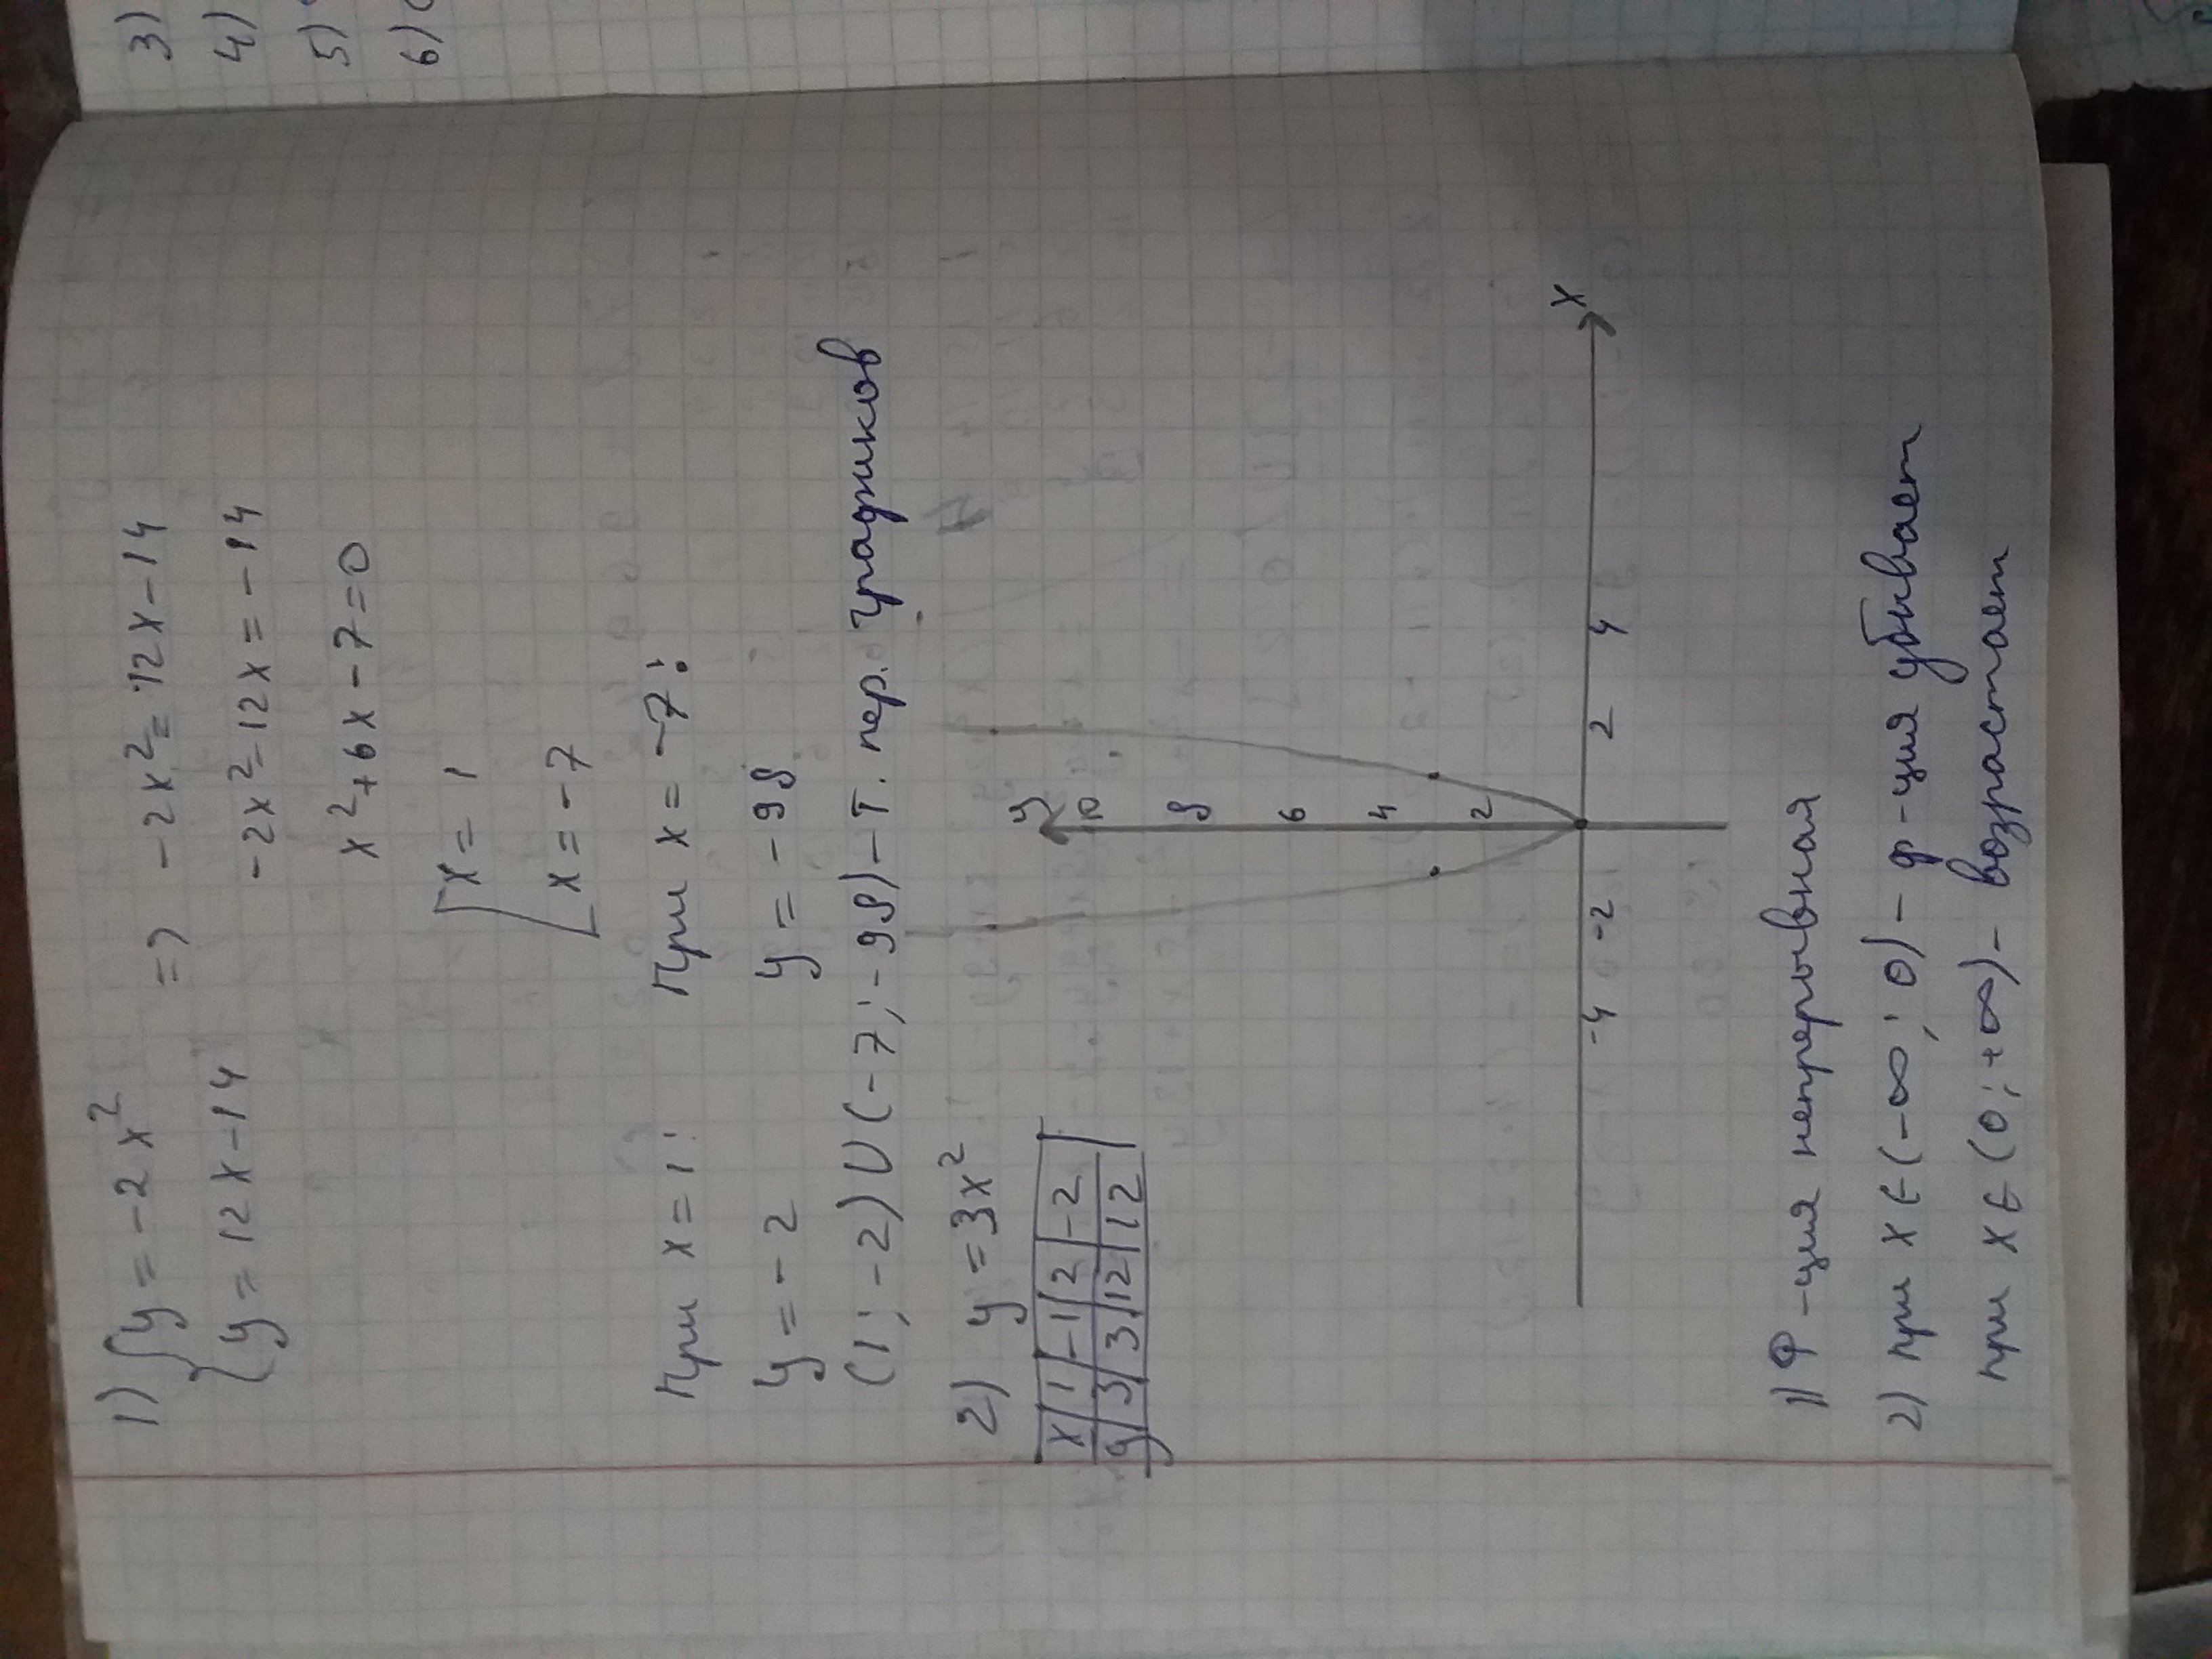 3)
4)
5)
6)
1) { y = -2x² => -2x² = 12x - 14
{ y = 12x - 14
-2x² - 12x = -14
x² + 6x - 7 = 0
[ x = 1
[ x = -7
При x = 1: При x = -7:
y = -2 y = -98
(1; -2) U (-7; -98) - т. пер. графиков
2) y = 3x²
x | 1 | -1 | 2 | -2
y | 3 | 3 | 12 | 12
y
10
8
6
4
2
-4 -2 2 4 x
1) Ф-ция непрерывная
2) при x ∈ (-∞; 0) - ф-ция убывает
при x ∈ (0; +∞) - возрастает